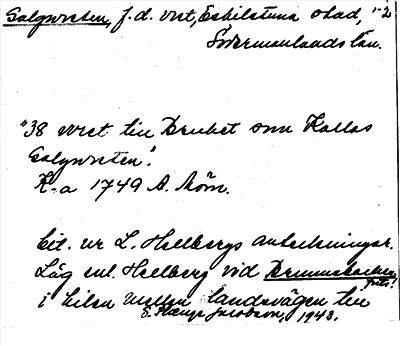 Galgvreten, f.d. vret, Eskilstuna stad, 1-2
Södermanlands län.
"38 vret til Bruket som Kallas
Galgvreten".
K-a 1749 A. Mörn.
Cit. ur L. Hellbergs anteckningar.
Låg enl. Hellberg vid Brunnsbacken,
i kilen mellan landsvägen till
S. Hænge Jacobson, 1943.